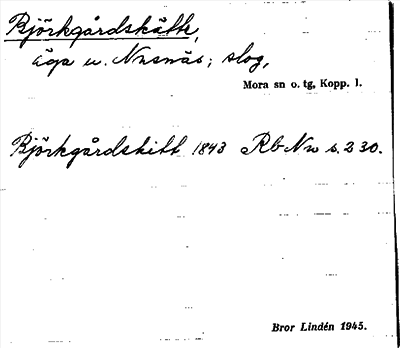 Björkgårdskätte,
äga u. Nusnäs; slog,
Mora sn o. tg, Kopp. l.
Björkgårdskitt 1843 Rb Nw s. 230.
Bror Lindén 1945.